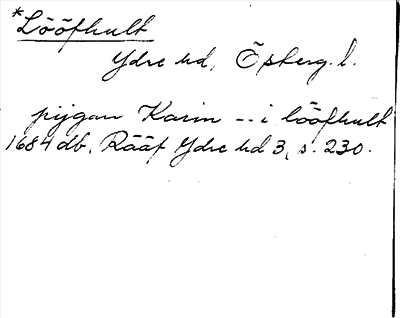 *Lööfhult
Ydre hd, Ösberg. l.
pijgan Karin -- i lööfhult
1684 db. Rääf Ydre hd 3, s. 230.